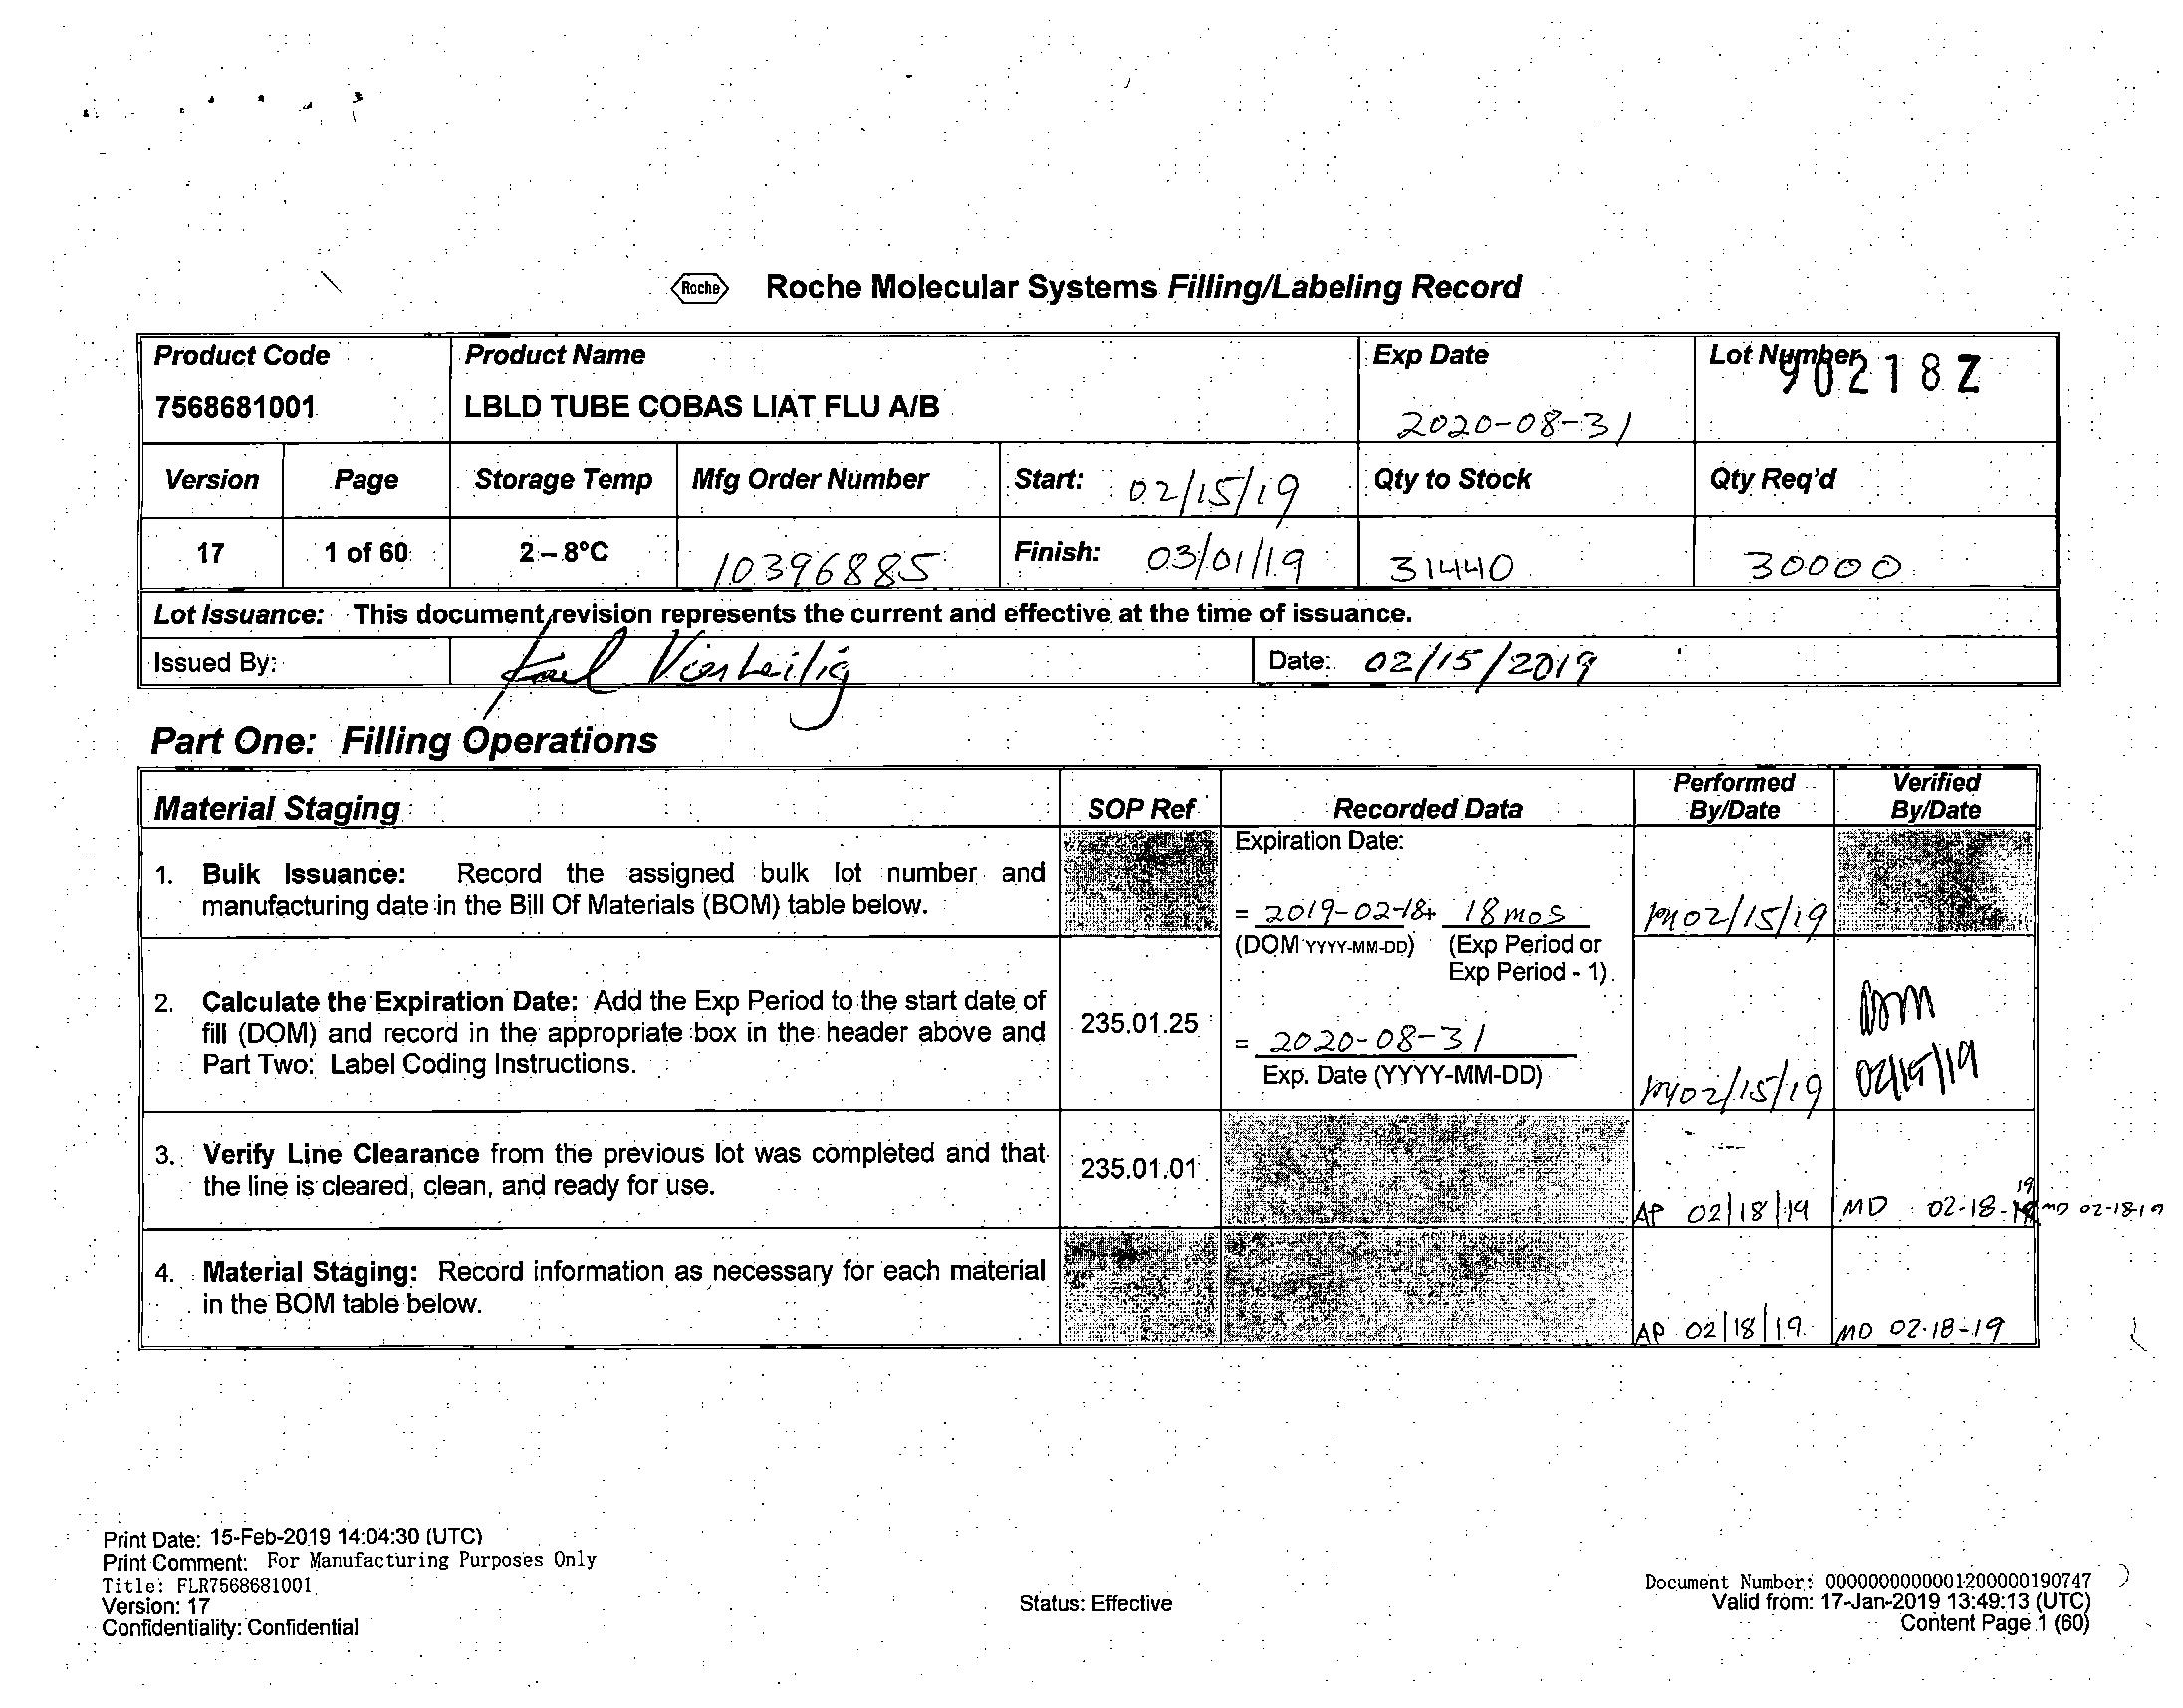 Roche Roche Molecular Systems Filling/Labeling Record
Product Code Product Name Exp Date Lot Number
90218Z
7568681001 LBLD TUBE COBAS LIAT FLU A/B 2020-08-31
Version Page Storage Temp Mfg Order Number Start: 02/15/19 Qty to Stock Qty Req'd
17 1 of 60 2 – 8°C 10396885 Finish: 03/01/19 31440 30000
Lot Issuance: This document revision represents the current and effective at the time of issuance.
Issued By: Date: 02/15/2019
Part One: Filling Operations
Material Staging SOP Ref Recorded Data Performed By/Date Verified By/Date
1. Bulk Issuance: Record the assigned bulk lot number and
manufacturing date in the Bill Of Materials (BOM) table below.
Expiration Date:
= 2019-02-18+ 18 mos
(DOM YYYY-MM-DD) (Exp Period or
Exp Period - 1)
02/15/19
2. Calculate the Expiration Date: Add the Exp Period to the start date of
fill (DOM) and record in the appropriate box in the header above and
Part Two: Label Coding Instructions.
235.01.25
= 2020-08-31
Exp. Date (YYYY-MM-DD)
02/15/19
02/15/19
3. Verify Line Clearance from the previous lot was completed and that
the line is cleared, clean, and ready for use.
235.01.01
AP 02/18/19 MD 02-18- 19 MD 02-18-19
4. Material Staging: Record information as necessary for each material
in the BOM table below.
AP 02/18/19 MD 02-18-19
Print Date: 15-Feb-2019 14:04:30 (UTC)
Print Comment: For Manufacturing Purposes Only
Title: FLR7568681001
Version: 17
Confidentiality: Confidential
Status: Effective
Document Number: 0000000000001200000190747
Valid from: 17-Jan-2019 13:49:13 (UTC)
Content Page 1 (60)